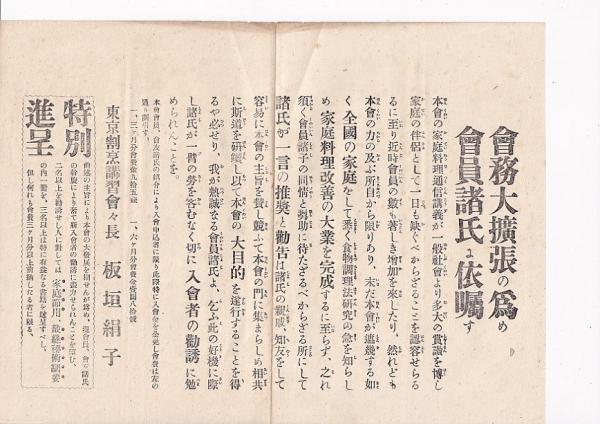 會務大擴張の爲め
會員諸氏に依囑す
本會の家庭料理通信講義が一般社會より多大の賞讃を博し
家庭の伴侶として一日も缺くべからざることを認容せらる
るに至り近時會員の數も著しき増加を來したり、然れども
本會の力の及ぶ所自から限りあり、未だ本會が遺幾する如
く全國の家庭をして悉く食物調理法研究の急を知らし
め家庭料理改善の大業を完成するに至らず、之れ
須く會員諸子の同情と努助に待たざるべからざる所にして
諸氏が一言の推奬と勸告は諸氏の親戚、知友をして
容易に本會の主旨を賛し競ふて本會の門に集まらしめ相共
に斯道を研鑽し以て本會の大目的を遂行することを得
るや必せり、我が熱誠なる會員諸氏よ、乞ふ此の好機に際
し諸氏が一臂の勞を吝むなく切に入會者の勸誘に勉
められんことを。
一、三ヶ月分會費金九拾五錢
一、六ヶ月分會費金壹圓八拾錢
東京割烹講習會々長 板垣絹子
特別
進呈
但し何れも會費三ヶ月分以上前納したる者に限る、